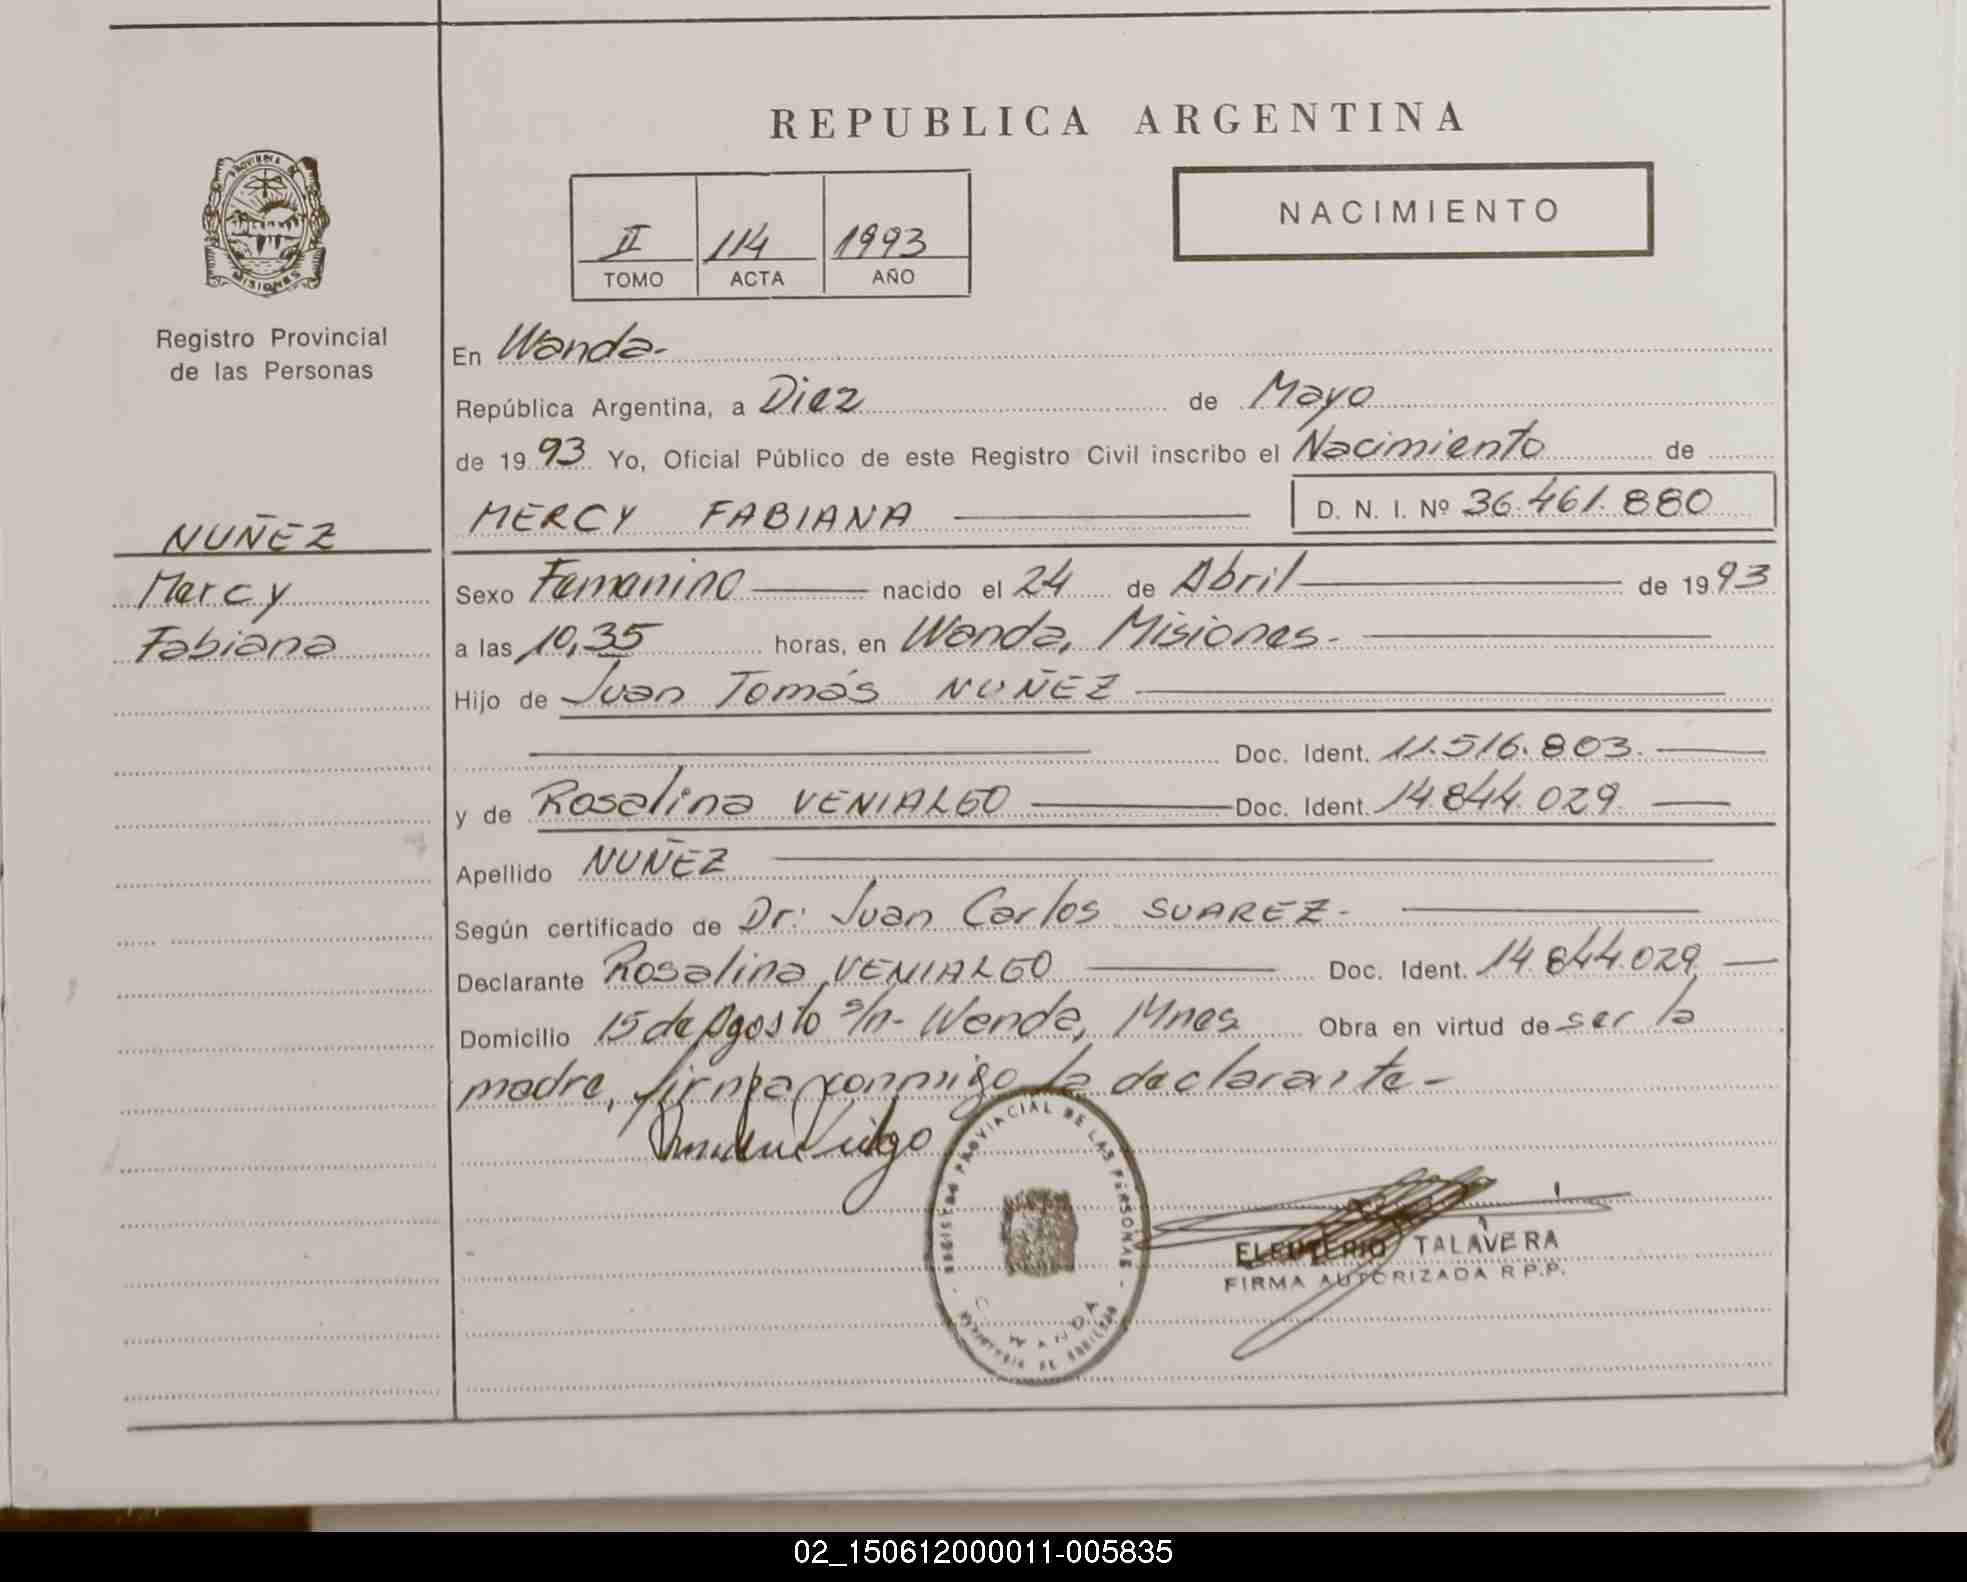 REPUBLICA ARGENTINA
PROVINCIA DE
MISIONES
Registro Provincial
de las Personas
II 114 1993
TOMO ACTA AÑO
NACIMIENTO
En Wanda-
República Argentina, a Diez de Mayo
de 19 93 Yo, Oficial Público de este Registro Civil inscribo el Nacimiento de
MERCY FABIANA D. N. I. Nº 36.461.880
NUÑEZ
Mercy
Fabiana
Sexo Femenino nacido el 24 de Abril de 19 93
a las 10,35 horas, en Wanda, Misiones.-
Hijo de Juan Tomás NUÑEZ
Doc. Ident. 11.516.803.
y de Rosalina VENIALGO Doc. Ident. 14.844.029.
Apellido NUÑEZ
Según certificado de Dr: Juan Carlos SUAREZ-
Declarante Rosalina VENIALGO Doc. Ident. 14.844.029.
Domicilio 15 de Agosto s/n- Wanda, Mnes Obra en virtud de ser la
madre, firma conmigo la declarante-
REGISTRO PROVINCIAL DE LAS PERSONAS
WANDA
ELEUTERIO TALAVERA
FIRMA AUTORIZADA R.P.P.
02_150612000011-005835